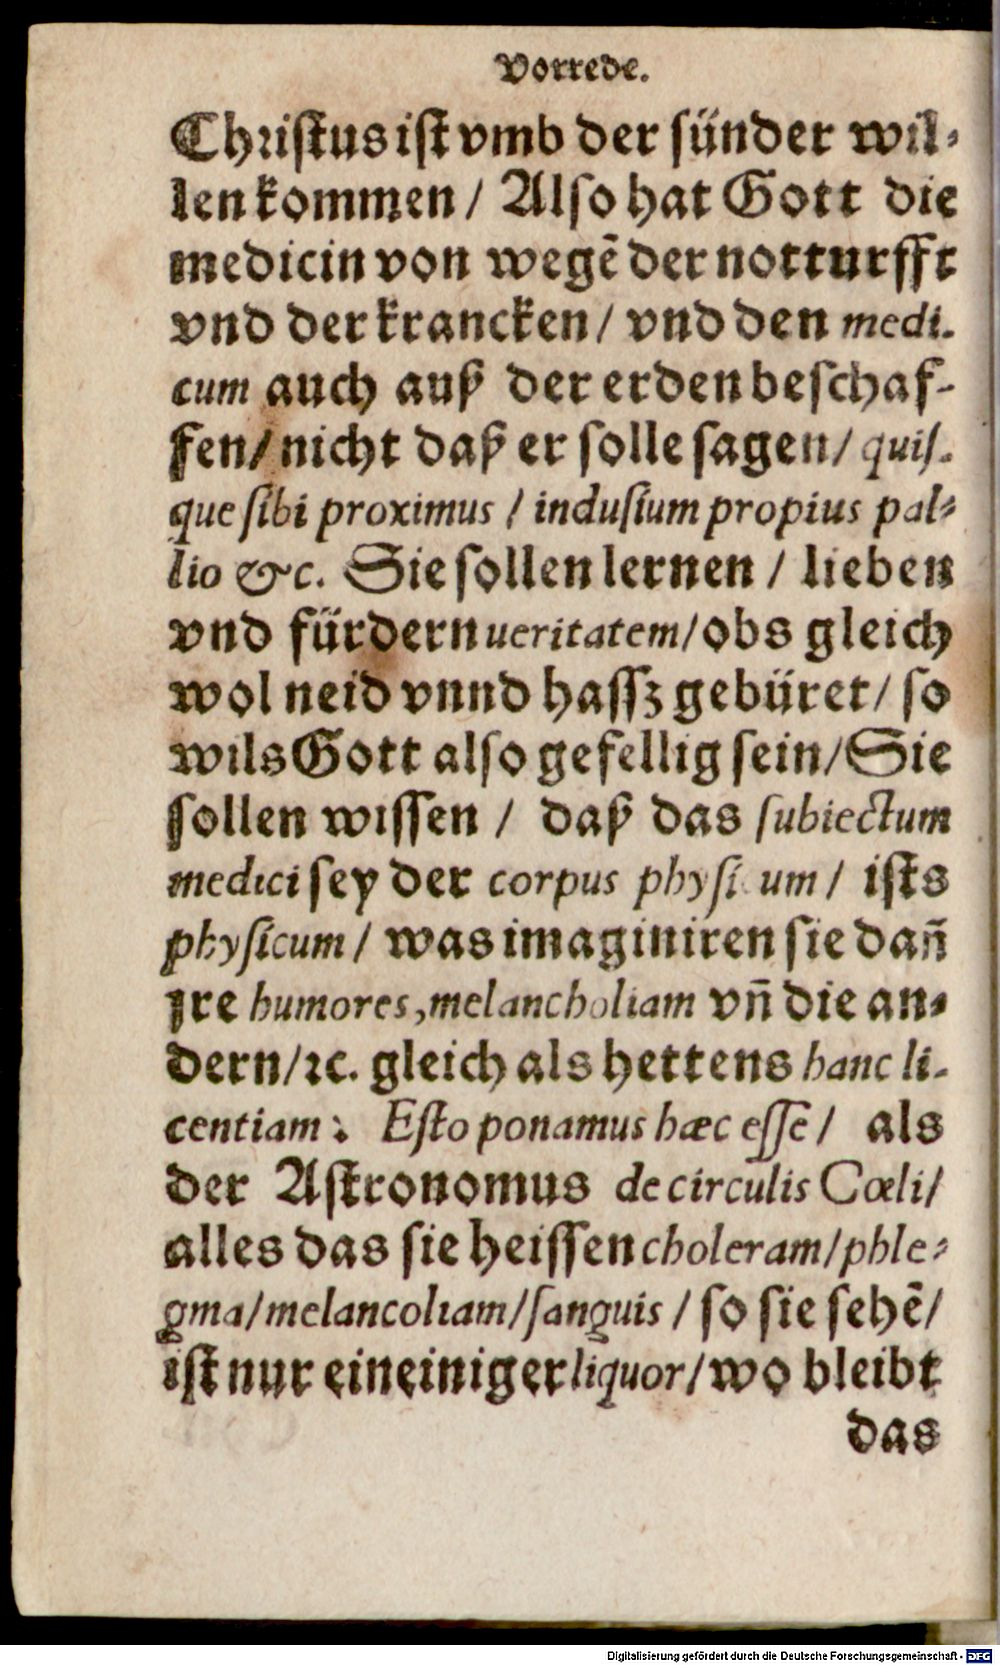 Vorrede.
Christus ist vmb der sünder wil⸗
len kommen / Also hat Gott die
medicin von wegẽ der notturfft
vnd der krancken / vnd den medi-
cum auch auß der erden beschaf-
fen / nicht daß er solle sagen / quis-
que sibi proximus / indusium propius pal⸗
lio &c. Sie sollen lernen / lieben
vnd fürdern ueritatem / obs gleich
wol neid vnnd hassz gebüret / so
wils Gott also gefellig sein / Sie
sollen wissen / daß das subiectum
medici sey der corpus physi um / ists
physicum / was imaginiren sie dañ
jre humores, melancholiam vñ die an⸗
dern / ꝛc. gleich als hettens hanc li-
centiam: Esto ponamus hæc esse / als
der Astronomus de circulis Cœli /
alles das sie heissen choleram / phle⸗
gma / melancoliam / sanguis / so sie sehẽ /
ist nur ein einiger liquor / wo bleibt
das
Digitalisierung gefördert durch die Deutsche Forschungsgemeinschaft - DFG